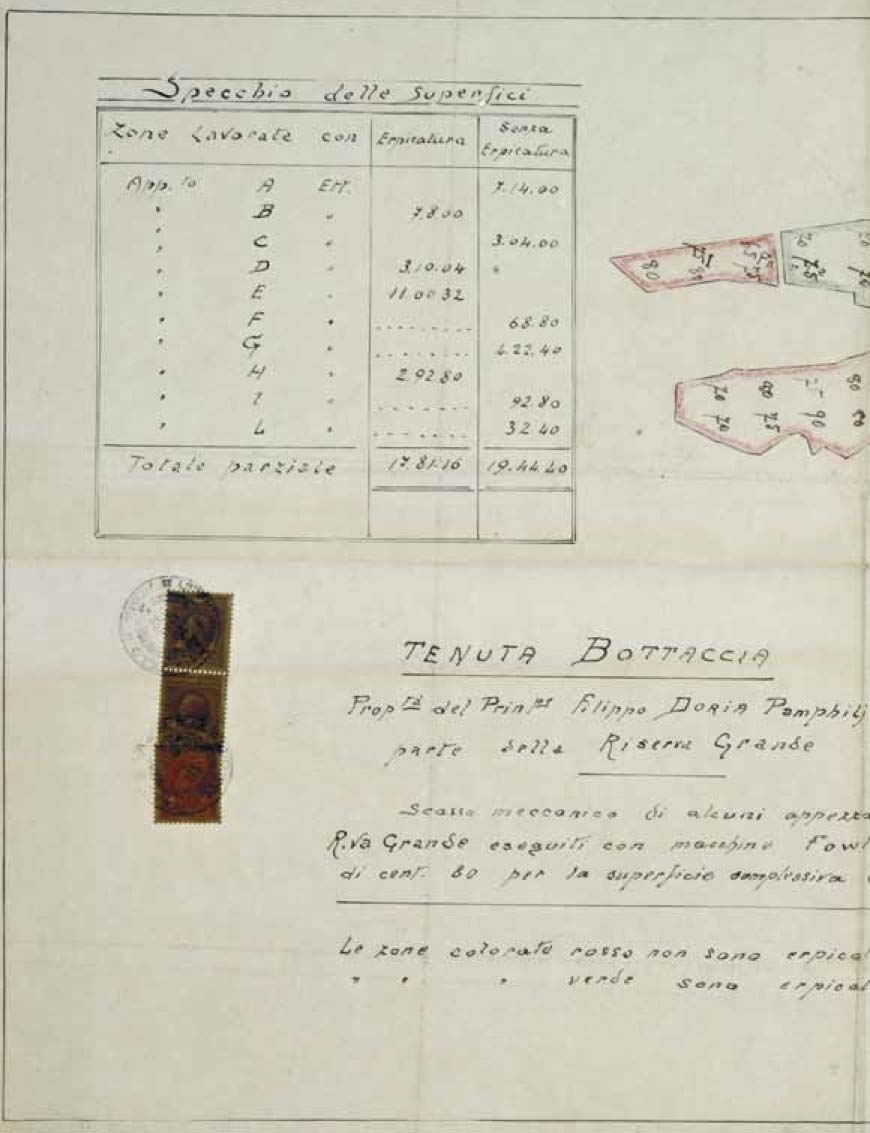 Specchio delle Superfici
Zone Lavorate con Erpicatura Senza Erpicatura
App.to A Ett. 7.14.00
" B " 7.8.00
" C " 3.04.00
" D " 3.10.04 "
" E " 11.00 32
" F " ........ 68.80
" G " ........ 4.22.40
" H " 2.92.80
" I " ........ 92.80
" L " ........ 32 40
Totale parziale 17.81.16 19.44.40
80 80
70 70 80 75 90
TENUTA BOTTACCIA
Prop.tà del Prin.pe Filippo DORIA Pamphilj
parte della Riserva Grande
Scasso meccanico di alcuni appezza
R.va Grande eseguiti con macchine Fowl
di cent. 80 per la superficie complessiva
Le zone colorate rosso non sono erpicat
" " " verde sono erpicat